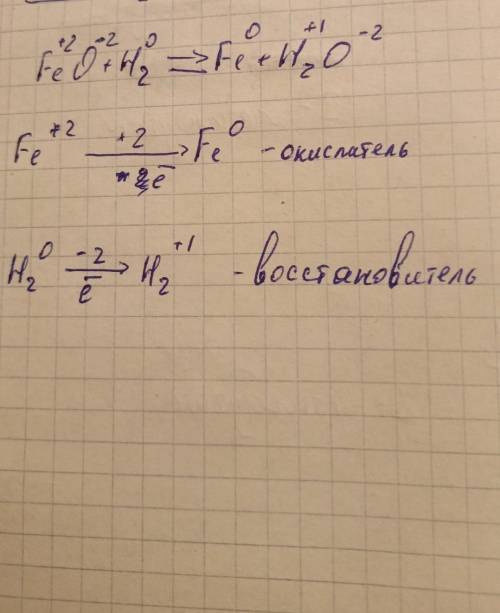 Fe⁺²O⁻² + H₂⁰ ⇌ Fe⁰ + H₂⁺¹O⁻²
Fe⁺² +2 e̅ → Fe⁰ - окислитель
H₂⁰ -2 e̅ → H₂⁺¹ - восстановитель